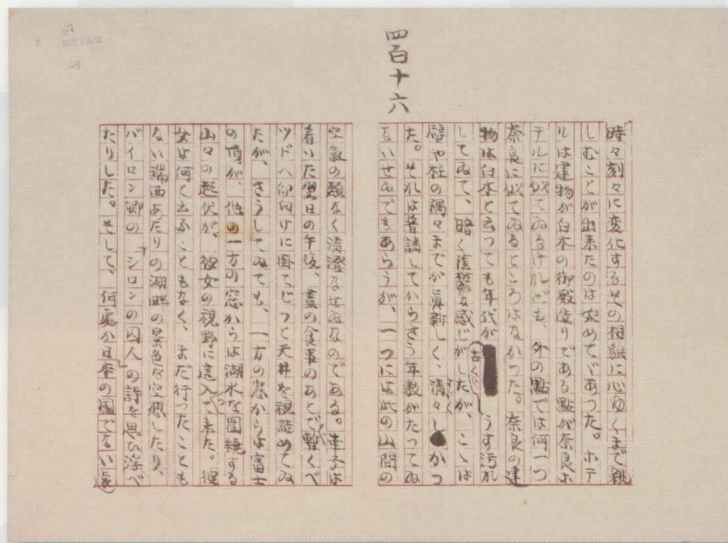 四百十六
時々刻々に変化するその相貌に心ゆくまで親
しむことが出来たのは始めてであつた。ホテ
ルは建物が白木の御殿造りである點が奈良ホ
テルに似てゐるけれども、外の點では何一つ
奈良に似てゐるところはなかつた。奈良の建
物は白木と云つても年代が古く。うす汚れ
してゐて、暗く陰鬱な感じがしたが、こゝは
壁や柱の隅々までが眞新しく、清々しかつ
た。それは普請してからさう年数がたつてゐ
ないせゐでもあらうが、一つには此の山間の
空氣の類なく清澄なせゐなのである。幸子は
着いた翌日の午後、晝の食事のあとで暫くべ
ツドへ仰向けに困てじつと天井を視詰めてゐ
たが、さうしてゐても、一方の窓からは富士
の頂が、他の一方の窓からは湖水を圍繞する
山々の起伏が、彼女の視野に這入て来た。彼
女は何と云ふこともなく、まだ行つたことも
ない瑞西あたりの湖畔の景色を空想したり、
バイロン卿の「シロンの囚人」の詩を思ひ浮べ
たりした。そして、何處か日本の國でない遠